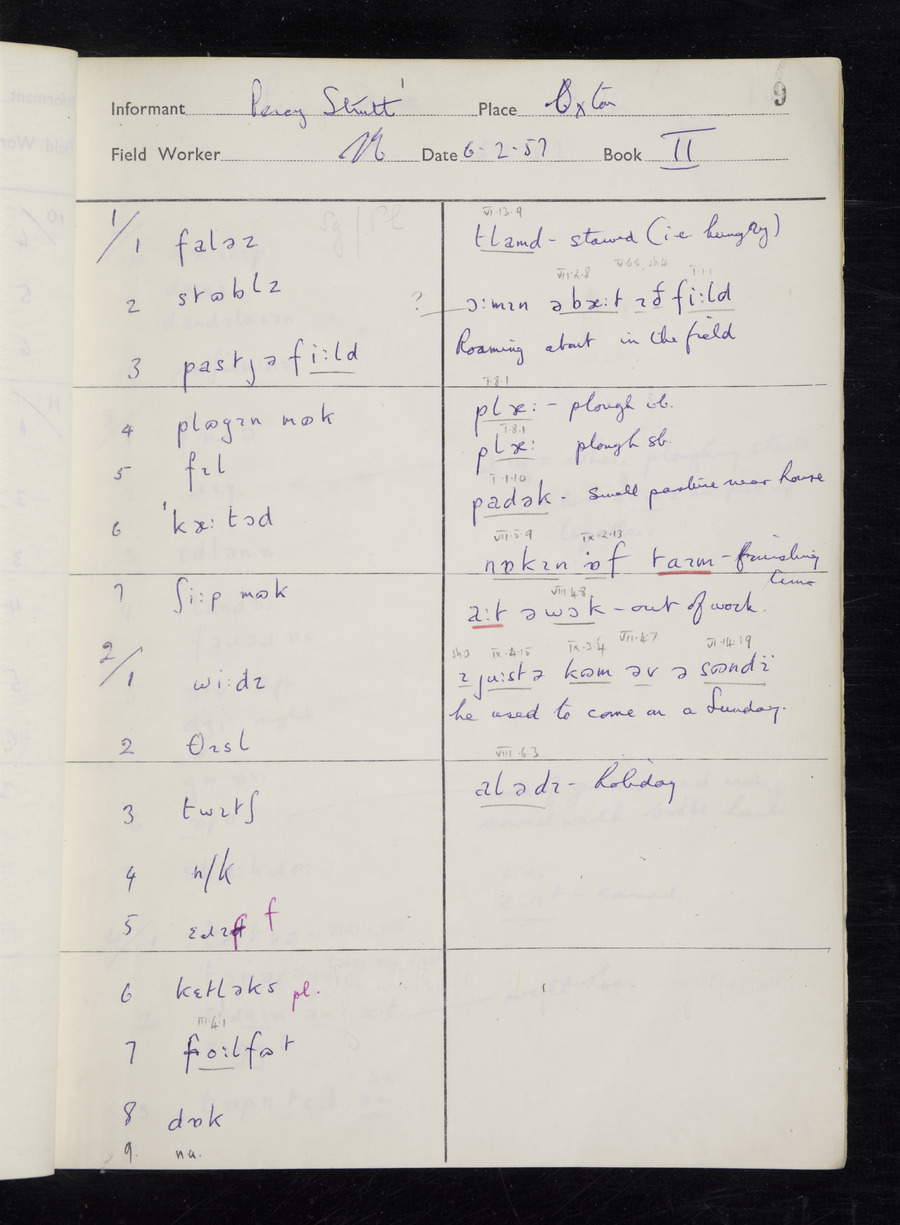 9
Informant Percy Strutt Place Oxton
Field Worker Date 6-2-57 Book II
1/1 faləz
2 stʊblɪ
3 pastjə fi:ld
4 plʊgɪn mʊk
5 fɪl
6 ˈkæ:təd
7 ʃi:p mʊk
2/1 wi:dz
2 θɪsl
3 twɪtʃ
4 n/k
5 f
6 kɛtləks pl.
III.4.1
7 fo:lfʊt
8 dɒk
9. na.
VI.13.9
tlamd - starved (i.e. hungry)
VII.2.8 V.6.6, sh4 I.1.1
? ɔ:mɪn əbæ:t ɪð fi:ld
Roaming about in the field
I.8.1
plæ: - plough vb.
I.8.1
plæ: plough sb.
I.1.10
padək - small pasture near house
VII.5.9 IX.2.13
nɒkɪn ɒf taɪm - finishing time
VIII.4.8
a:t ə wɔk - out of work.
sh3 IX.4.15 IX.3.4 VII.4.7 VI.14.19
ɪ ju:stə kʊm əv ə sʊndɪ
he used to come on a Sunday.
VIII.6.3
alədɪ - holiday